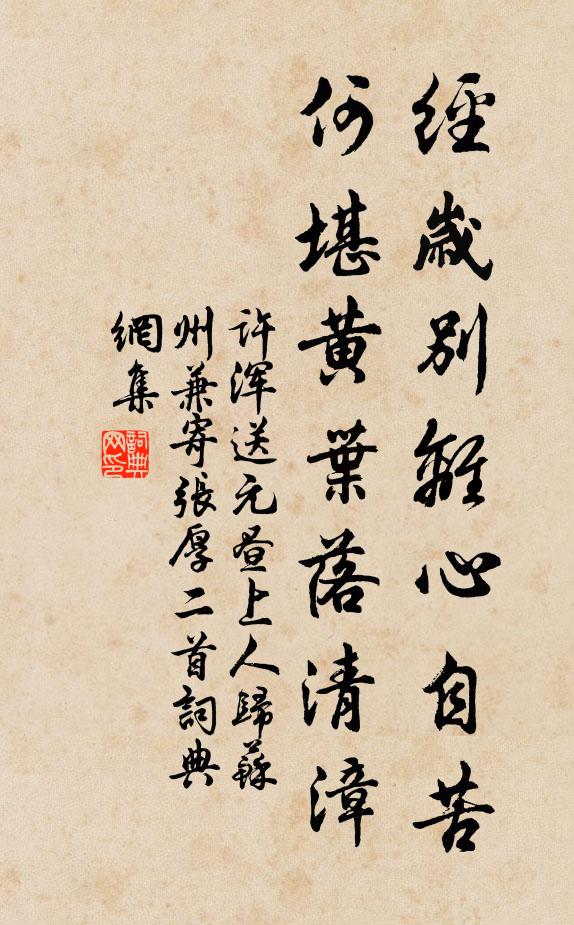 經歲別離心自苦
何堪黃葉落清漳
許渾送元晝上人歸蘇
州兼寄張厚二首詞典
網集
詞典
网印